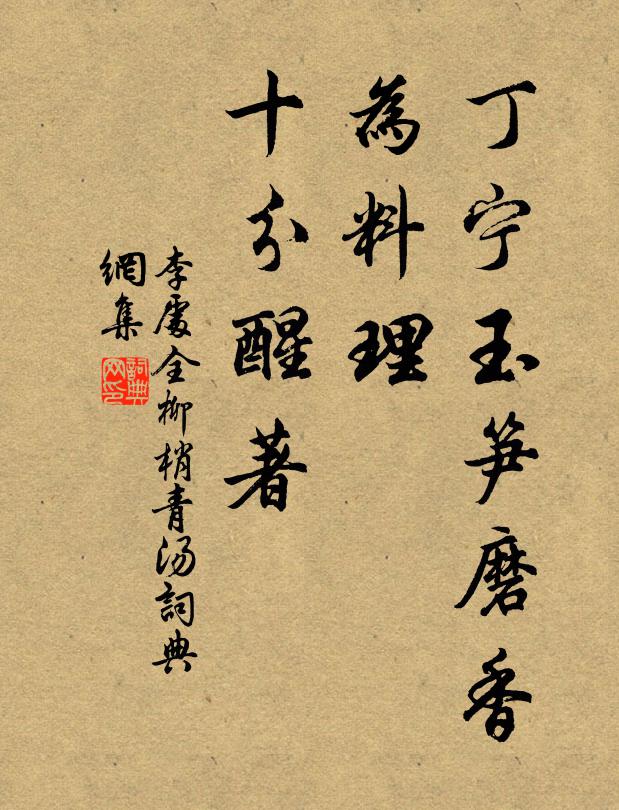 丁宁玉笋磨香
為料理
十分醒著
李處全柳梢青湯詞典
網集
詞典网印